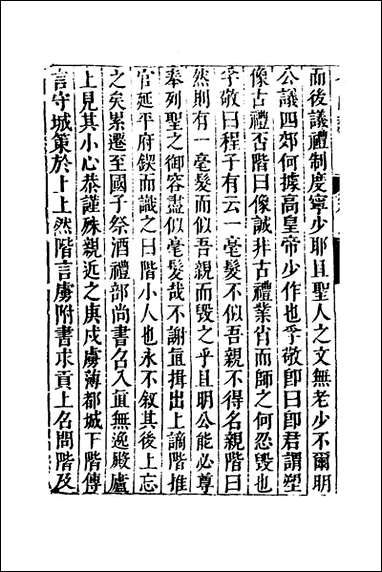 而後議禮制度寧少耶且聖人之文無老少不爾明
公議四郊何據高皇帝少作也孚敬卽曰卽君謂塑
像古禮否階曰像誠非古禮業肖而師之何忍毀也
孚敬曰程子有云一毫髮不似吾親不得名親階曰
然則有一毫髮而似吾親而毀之乎且明公能必尊
奉列聖之御容盡似毫髮哉不謝直揖出上謫階推
官延平府鍥而識之曰階小人也永不敘其後上忘
之矣累遷至國子祭酒禮部尚書召入直無逸殿廬
上見其小心恭謹殊親近之庚戌虜薄都城下階傳
言守城策於上上然階言虜附書求貢上名問階及